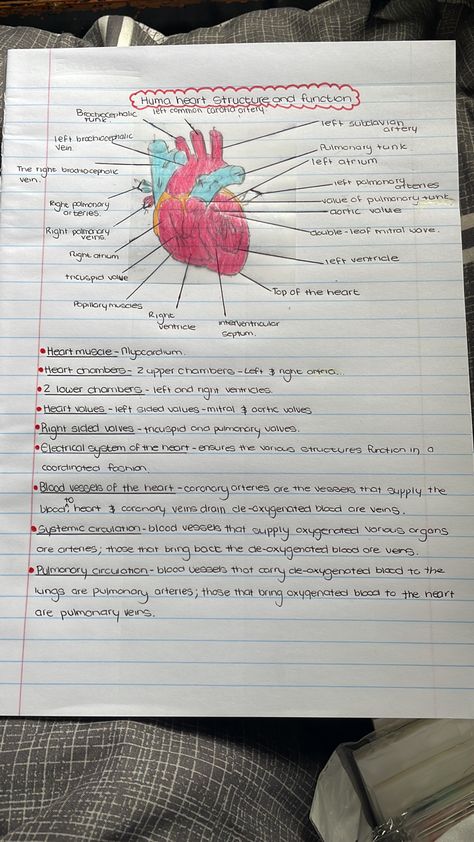 Huma heart structure and function
left common carotid artery.
Brachiocephalic
tunk.
left subclavian
artery
left brochiocephalic
vein.
Pulmonary tunk.
left atrium
The right brochiocepholic
vein.
left pulmonary
arteries
Right pulmonary
arteries.
valve of pulmonary tunk
aortic valve
Right pulmonary
veins.
double-leaf mitral wave.
Right atrium
left ventricle
tricuspid valve
Top of the heart
Papillary muscles
Right
ventricle
interventricular
septum.
• Heart muscle - Myocardium.
• Heart chambers - 2 upper chambers - left & right atria.
• 2 lower chambers - left and right ventricles.
• Heart valves - left sided valves - mitral & aortic valves
• Right sided valves - tricuspid and pulmonary valves.
• Electrical system of the heart - ensures the various structures function in a
coordinated fashion.
• Blood vessels of the heart - coronary arteries are the vessels that supply the
blood, to heart & coronary veins drain de-oxygenated blood are veins.
• Systemic circulation - blood vessels that supply oxygenated various organs
are arteries; those that bring back the de-oxygenated blood are veins.
• Pulmonary circulation - blood vessels that carry de-oxygenated blood to the
lungs are pulmonary arteries; those that bring oxygenated blood to the heart
are pulmonary veins.